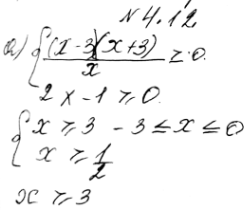 N 4.12
a) { (x-3)(x+3) / x ≥ 0
2x - 1 ≥ 0
{ x ≥ 3 - 3 ≤ x ≤ 0
x ≥ 1/2
x ≥ 3